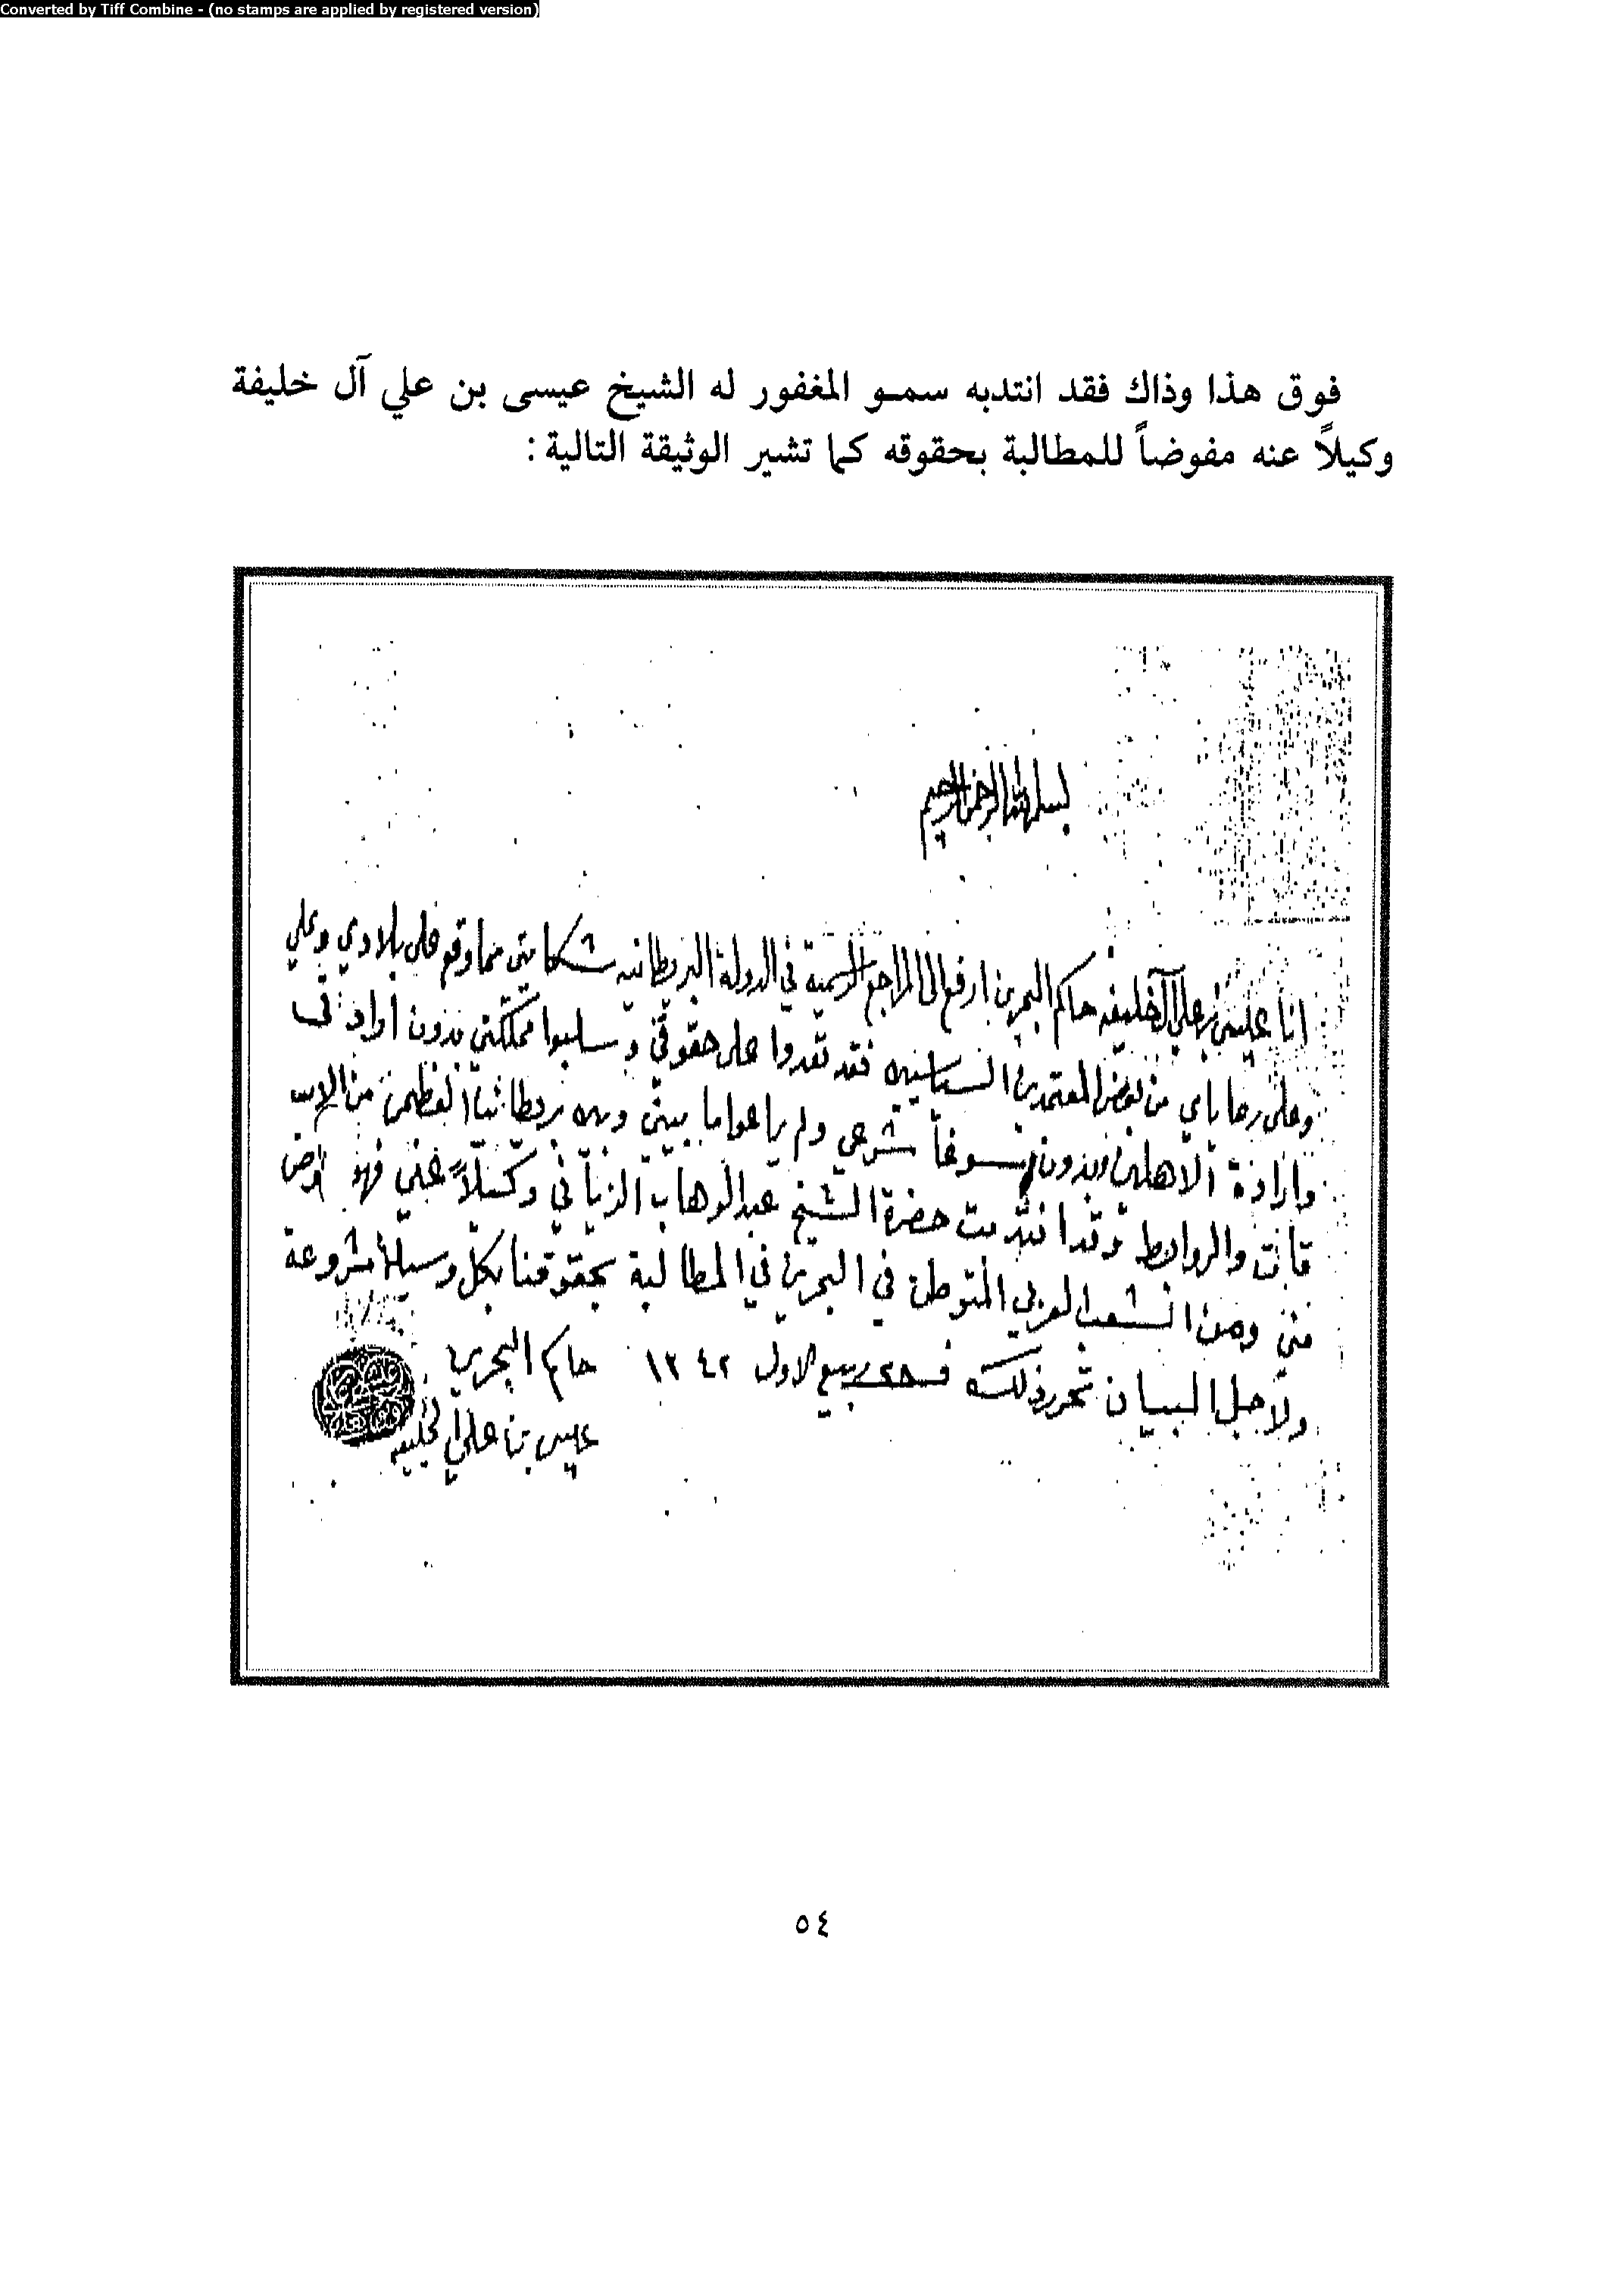 Converted by Tiff Combine - (no stamps are applied by registered version)
فوق هذا وذاك فقد انتدبه سمو المغفور له الشيخ عيسى بن علي آل خليفة
وكيلاً عنه مفوضاً للمطالبة بحقوقه كما تشير الوثيقة التالية :
بسم الله الرحمن الرحيم
انا عيسى بن علي آل خليفه حاكم البحرين ارفع الى المراجع الرسمية في الدولة البريطانيه شكايتي مما وقع على بلادي وعلي
وعلى رعاياي من بعض المعتمدين السياسيين فقد تعدوا على حقوقي وسلبوا مملكتي بدون ارادتي
وارادة الاهلين وبدون مسوغاً شرعي ولم يراعوا ما بيني وبين بريطانيا العظمى من
والروابط وقد انتدبت حضرة الشيخ عبد الوهاب الزياني وكيلاً عني فهو
مني ومن الشعب العربي المتوطن في البحرين في المطالبة بحقوقنا بكل وسيلة مشروعة
ولاجل البيان تحرر ذلك في ربيع الاول ١٣٤٢ حاكم البحرين
عيسى بن علي ال خليفه
٥٤